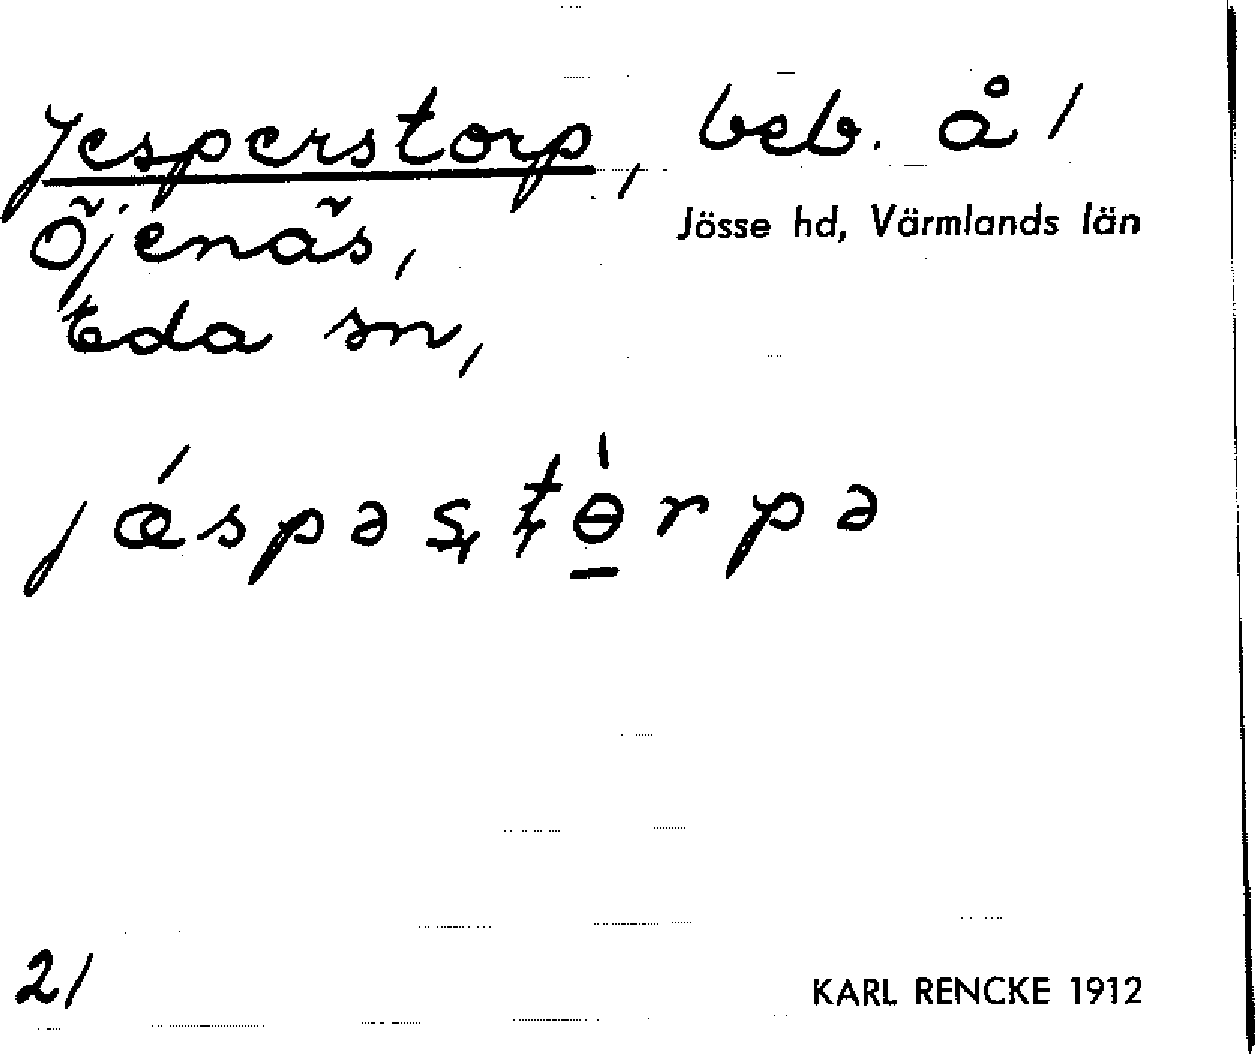 Jesperstorp, beb. å 1
Öjenäs, Jösse hd, Värmlands län
Eda sn,
jǽspəsṭɵ̀rpə
21
KARL RENCKE 1912